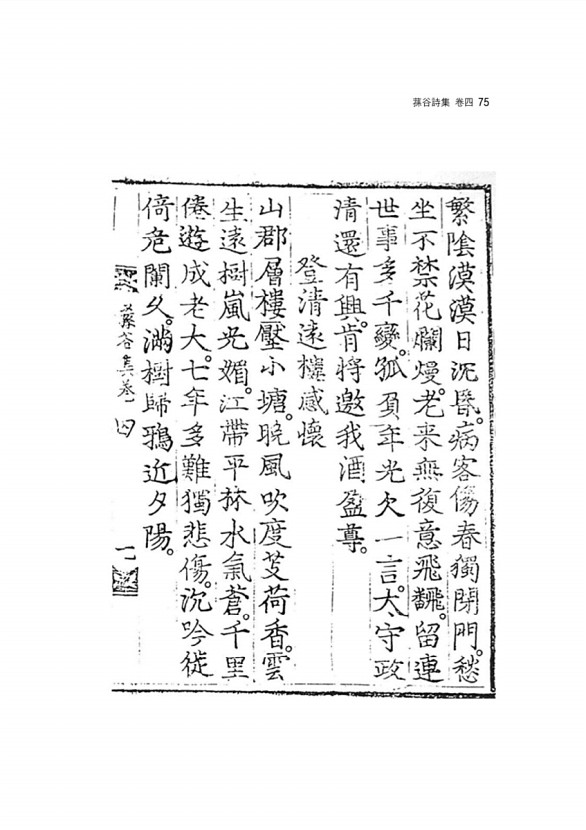 蓀谷詩集 卷四 75
繁陰漠漠日沉昬。病客傷春獨閉門。愁
坐不禁花爛熳。老来無復意飛飜。留連
世事多千變。孤負年光欠一言。太守政
清還有興。肯將邀我酒盈尊。
登清遠樓感懷
山郡層樓壓小塘。晩風吹度芰荷香。雲
生遠樹嵐光媚。江帶平林水氣蒼。千里
倦遊成老大。七年多難獨悲傷。沉吟徙
倚危闌久。滿樹歸鴉近夕陽。
蓀谷集卷四 一